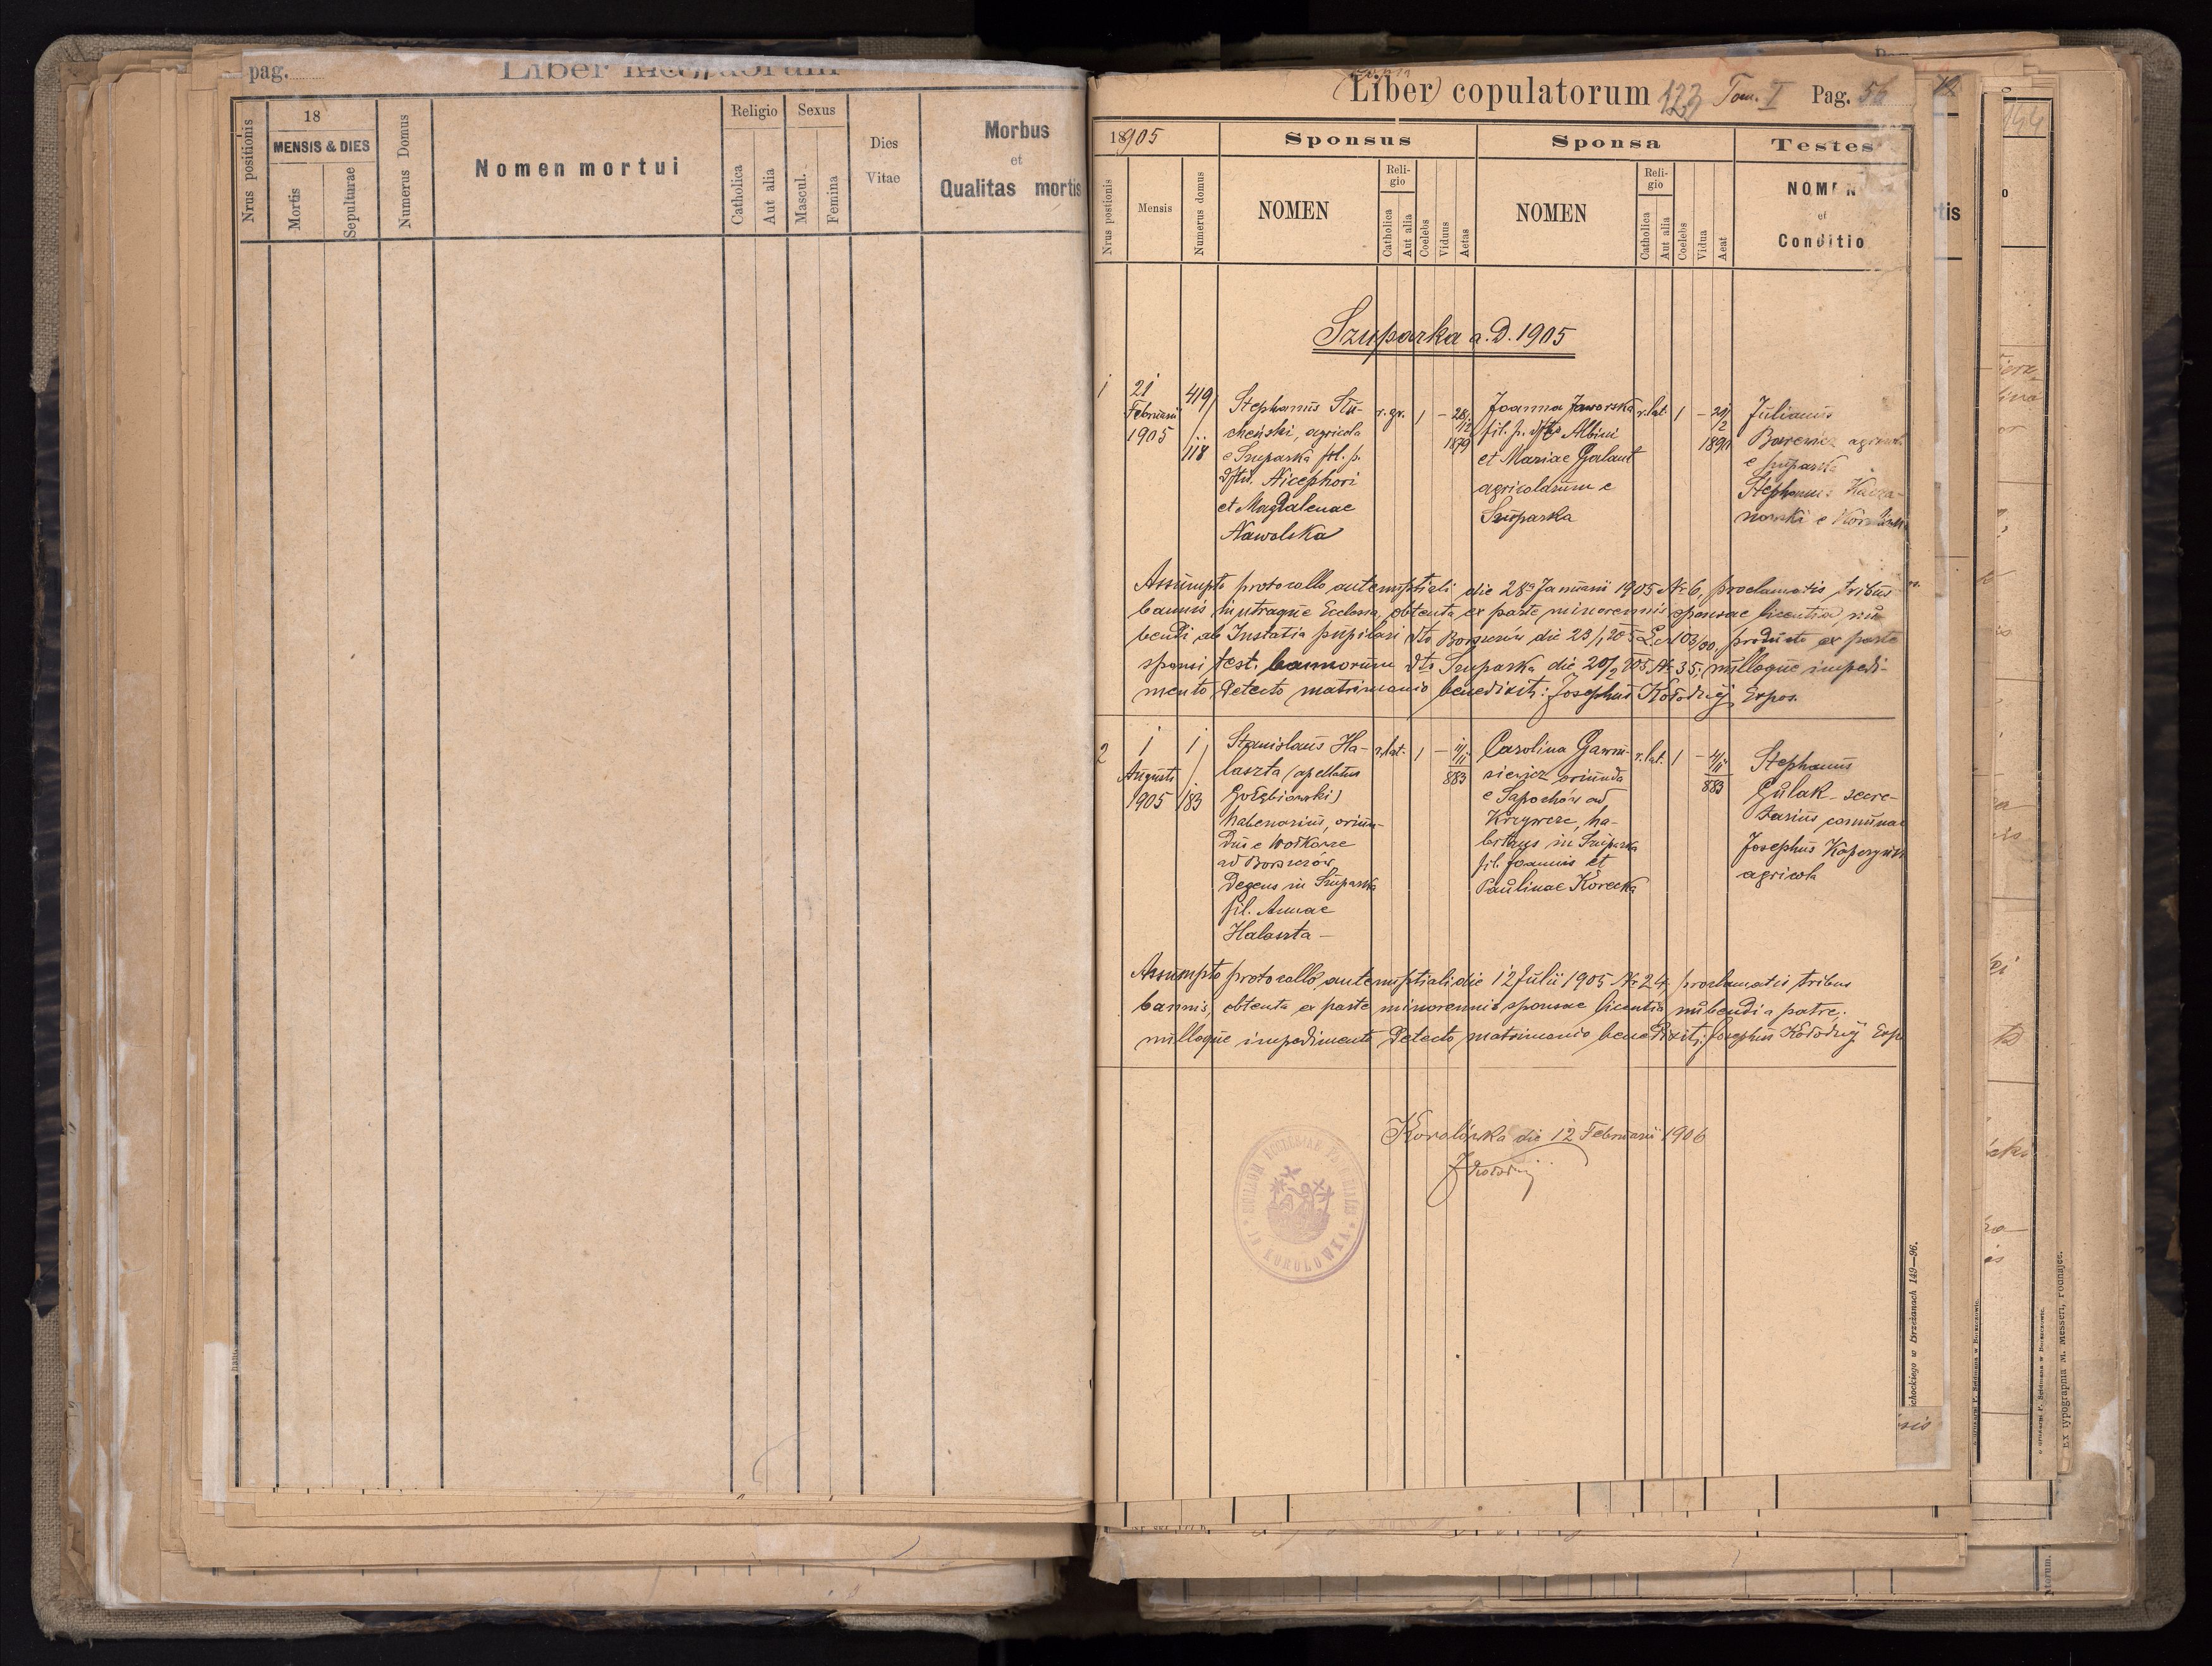 pag.
Liber
18
MENSIS & DIES
Nrus positionis
Mortis
Sepulturae
Numerus Domus
Nomen mortui
Religio
Catholica
Aut alia
Sexus
Mascul.
Femina
Dies
Vitae
Morbus
et
Qualitas mortis
(Liber) copulatorum 123 Tom. I Pag. 56
1905
Sponsus
Sponsa
Testes
Nrus postionis
Mensis
Numerus domus
NOMEN
Religio
Catholica
Aut alia
Coelebs
Viduus
Aetas
NOMEN
Religio
Catholica
Aut alia
Coelebs
Vidua
Aeat
NOMEN
et
Conditio
Szuparka a.D. 1905
1
21
Februarii
1905
419/
118
Stephanus Stu-
cheński, agricola
e Szuparka fil. p.
dftu. Nicephori
et Magdalenae
Nawolska
r.gr. 1 - 28/
12
1879
Joanna Jaworska
fil. p. Albini
et Mariae Galant
agricolarum e
Szuparka
r.lat. 1 - 29/
2
Julianus
agricola
e Szuparka
Stephanus
nowski e
Assumpto protocollo antenuptiali die 28a Januarii 1905 Nr 6, proclamatis tribus
bannis in utraque Ecclesia, obtenta ex parte minorennis sponsae licentia nu-
bendi ab Instatia pupilari dto Borszczów die 23/1 905 L.c. 103/00, producto ex parte
sponsi test. bannorum dto Szuparka die 20/2 905 Nr 35; nulloque impedi-
mento detecto matrimonio benedixit: Josephus Kołodziej Expos.
2
1
Augusti
1905
1/
183
Stanislaus Ha-
laszta (apellatus
Gołębiowski)
habenarius, oriun-
dus e Wołkowce
ad Borszczów
degens in Szuparka
fil. Annae
Halaszta -
r.lat. 1 - 11/
11
883
Carolina Gawru-
siewicz oriunda
e Sapochów ad
Krzywcze, ha-
bitans in Szuparka
fil. Joannis et
Paulinae Korecka
r.lat. 1 - 4/
11
883
Stephanus
Gulak - secre-
tarius comunae
Josephus
agricola
Assumpto protocollo antenuptiali die 12 Julii 1905 Nr 24, proclamatis tribus
bannis, obtenta ex parte minorennis sponsae licentia nubendi a patre,
nulloque impedimento detecto matrimonio benedixit: Josephus Kołodziej Exp
Korolówka die 12 Februarii 1906
JKołodziej
SIGILLUM ECCLESIAE
KOROLOWKA
chockiego w Brzeżanach 149—96.
Ex typographia M. Messeri, Podhajce.